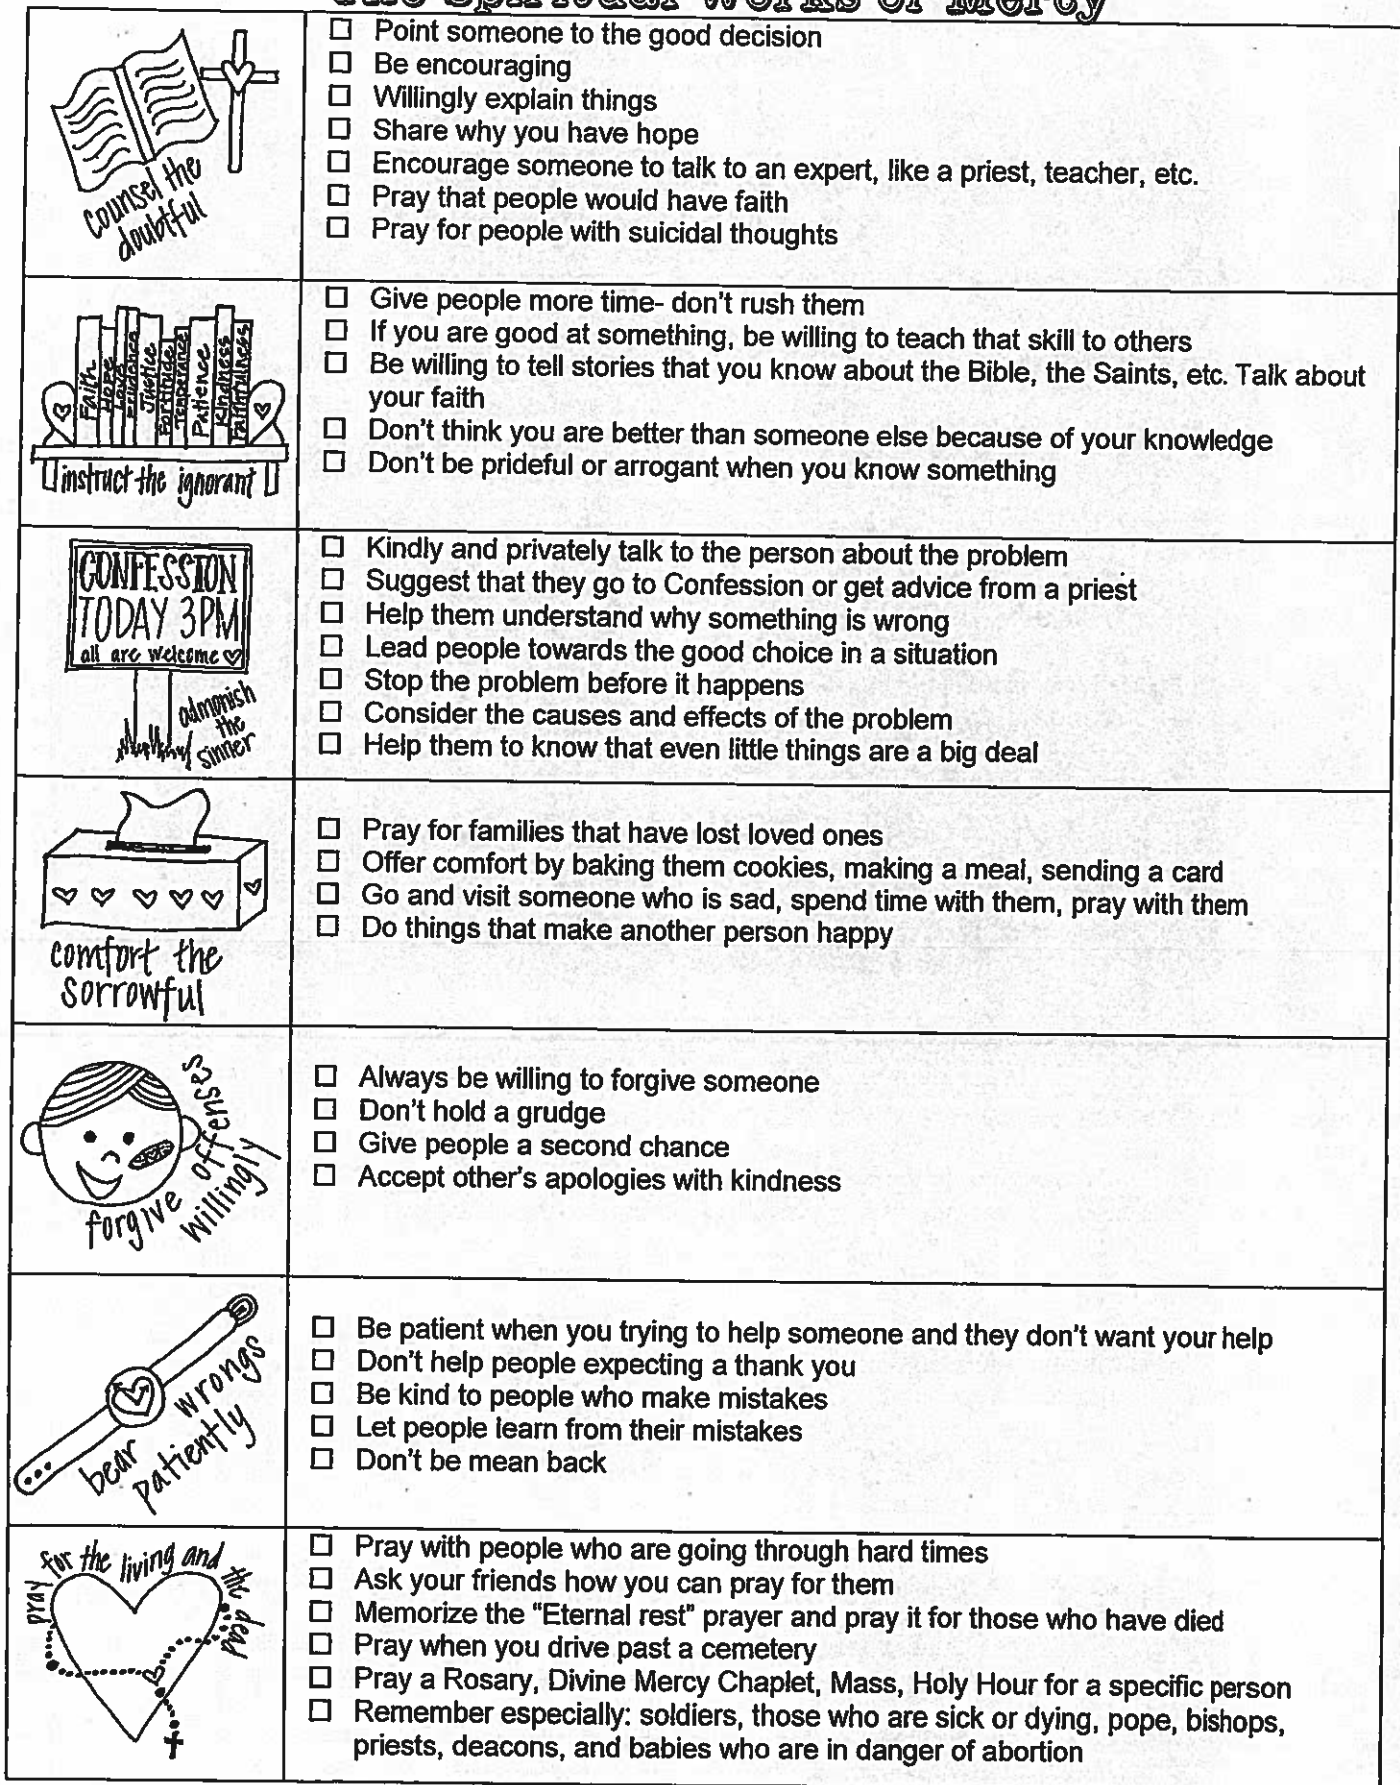 The Spiritual Works of Mercy
counsel the
doubtful
☐ Point someone to the good decision
☐ Be encouraging
☐ Willingly explain things
☐ Share why you have hope
☐ Encourage someone to talk to an expert, like a priest, teacher, etc.
☐ Pray that people would have faith
☐ Pray for people with suicidal thoughts
Faith
Hope
Love
Prudence
Justice
Fortitude
Temperance
Patience
Kindness
Faithfulness
instruct the ignorant
☐ Give people more time- don't rush them
☐ If you are good at something, be willing to teach that skill to others
☐ Be willing to tell stories that you know about the Bible, the Saints, etc. Talk about
your faith
☐ Don't think you are better than someone else because of your knowledge
☐ Don't be prideful or arrogant when you know something
CONFESSION
TODAY 3PM
all are welcome
admonish
the
sinner
☐ Kindly and privately talk to the person about the problem
☐ Suggest that they go to Confession or get advice from a priest
☐ Help them understand why something is wrong
☐ Lead people towards the good choice in a situation
☐ Stop the problem before it happens
☐ Consider the causes and effects of the problem
☐ Help them to know that even little things are a big deal
comfort the
sorrowful
☐ Pray for families that have lost loved ones
☐ Offer comfort by baking them cookies, making a meal, sending a card
☐ Go and visit someone who is sad, spend time with them, pray with them
☐ Do things that make another person happy
forgive offenses
willingly
☐ Always be willing to forgive someone
☐ Don't hold a grudge
☐ Give people a second chance
☐ Accept other's apologies with kindness
bear wrongs
patiently
☐ Be patient when you trying to help someone and they don't want your help
☐ Don't help people expecting a thank you
☐ Be kind to people who make mistakes
☐ Let people learn from their mistakes
☐ Don't be mean back
pray for the living and the dead
☐ Pray with people who are going through hard times
☐ Ask your friends how you can pray for them
☐ Memorize the "Eternal rest" prayer and pray it for those who have died
☐ Pray when you drive past a cemetery
☐ Pray a Rosary, Divine Mercy Chaplet, Mass, Holy Hour for a specific person
☐ Remember especially: soldiers, those who are sick or dying, pope, bishops,
priests, deacons, and babies who are in danger of abortion